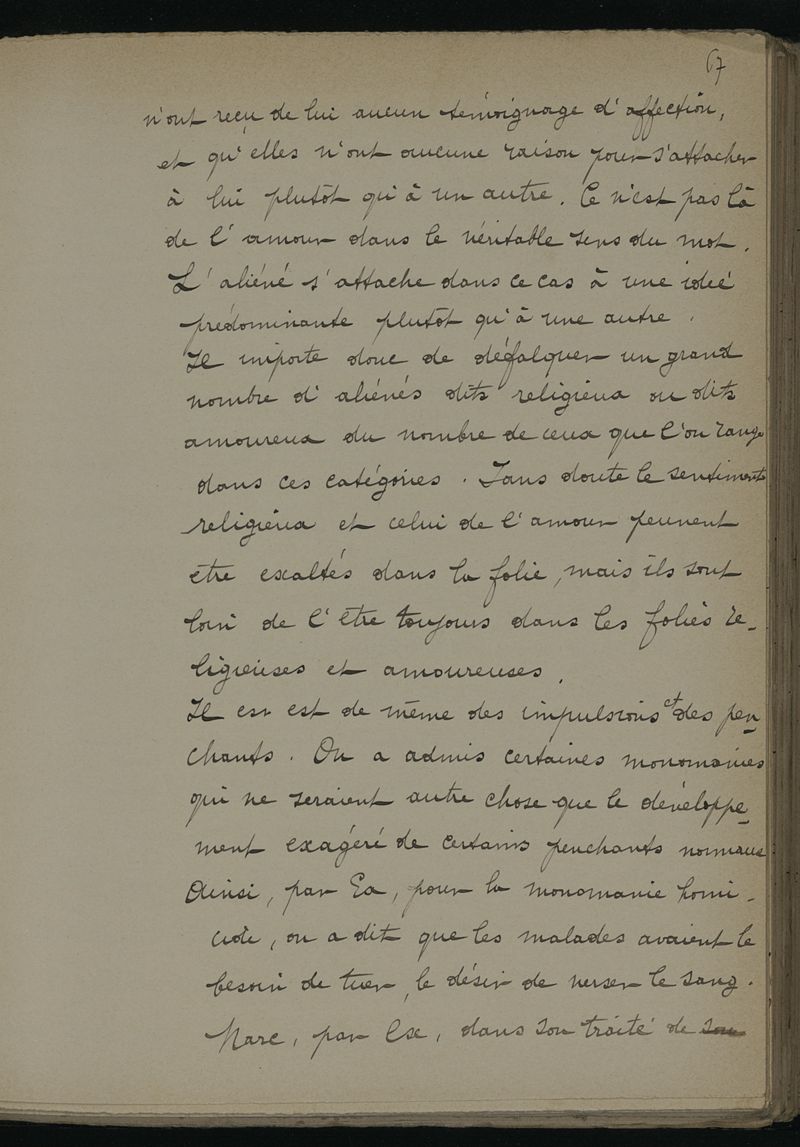 67
n'ont reçu de lui aucun témoignage d'affection,
et qu'elles n'ont aucune raison pour s'attacher
à lui plutôt qu'à un autre. Ce n'est pas là
de l'amour dans le véritable sens du mot.
L'aliéné s'attache dans ce cas à une idée
prédominante plutôt qu'à une autre.
Il importe donc de défalquer un grand
nombre d'aliénés dits religieux ou dits
amoureux du nombre de ceux que l'on range
dans ces catégories. Sans doute le sentiment
religieux et celui de l'amour peuvent
etre exaltés dans la folie, mais ils sont
loin de l'être toujours dans les folies re-
ligieuses et amoureuses.
Il en est de même des impulsions et des pen-
chants. On a admis certaines monomanies
qui ne seraient autre chose que le développe-
ment exagéré de certains penchants normaux
Ainsi, par Ex, pour la monomanie homi-
cide, on a dit que les malades avaient le
besoin de tuer, le désir de verser le sang.
Marc, par Ex, dans son traité de son